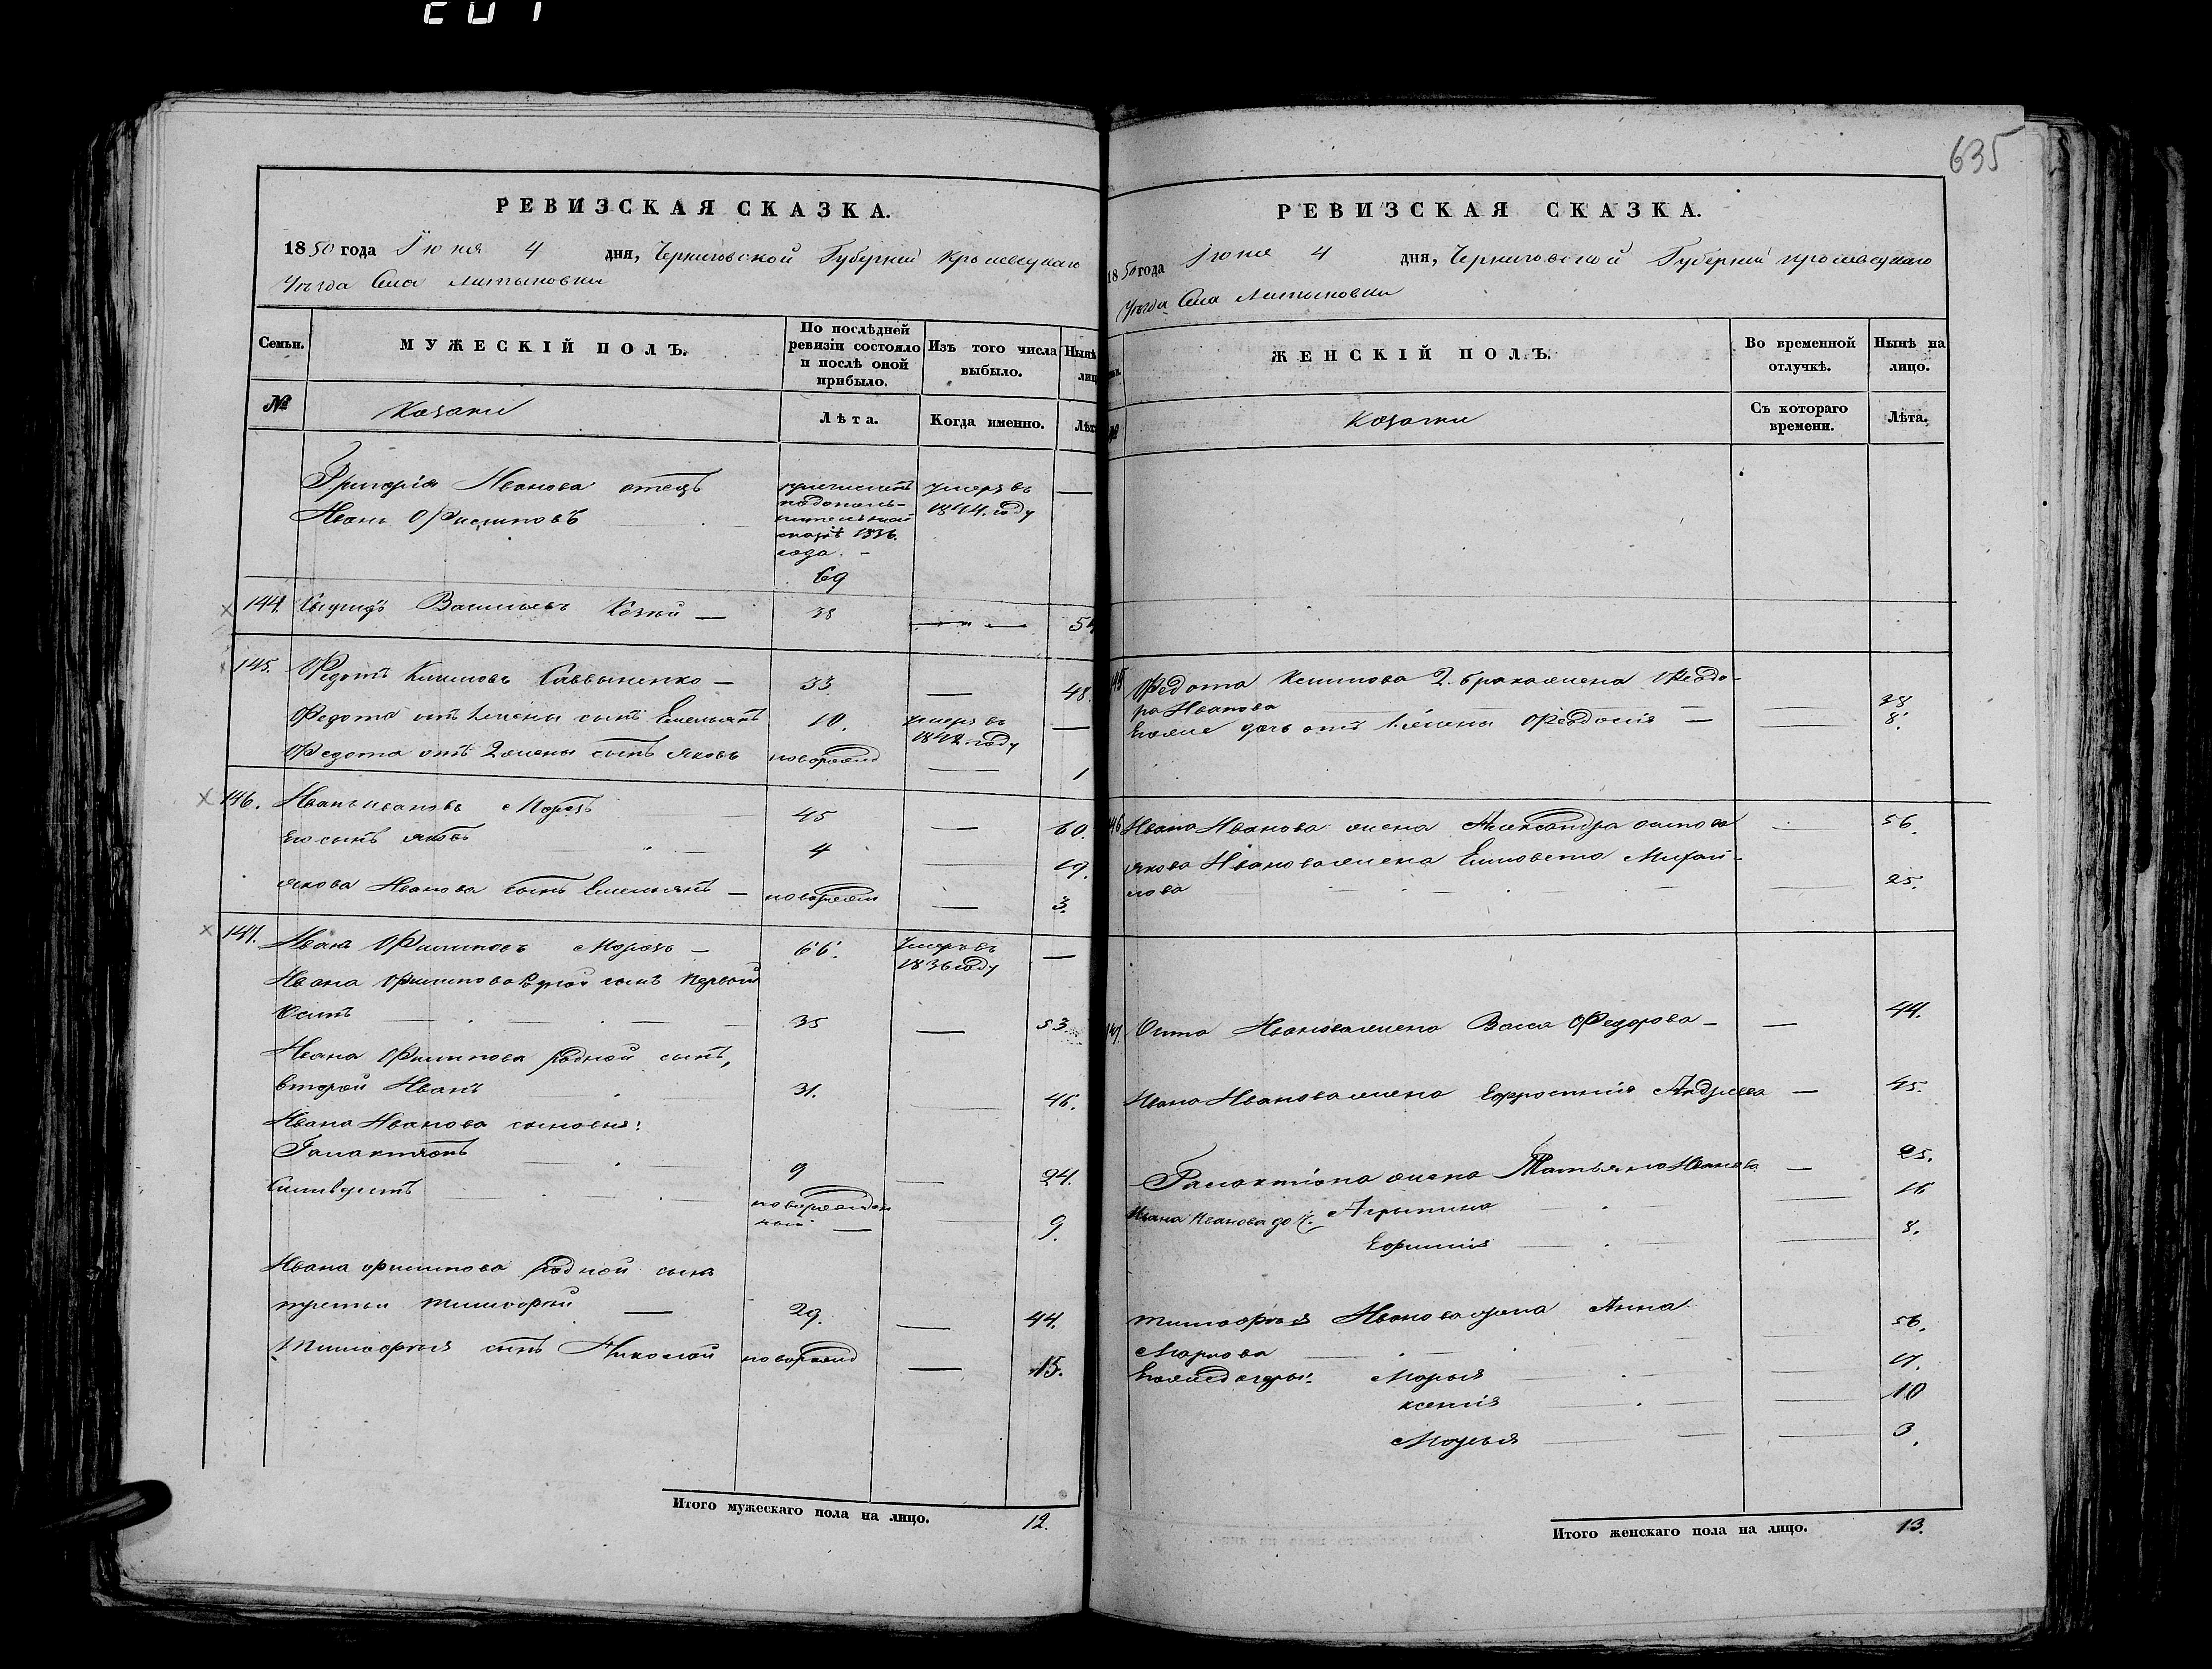 635
РЕВИЗСКАЯ СКАЗКА.
1850 года Июня 4 дня, Черниговской Губерніи Кролевецкаго
Уѣзда Села Литвиновки
Семьи.
МУЖЕСКІЙ ПОЛЪ.
По послѣдней ревизіи состояло и послѣ оной прибыло.
Изъ того числа выбыло.
Нынѣ
лиц
№
Козаки
Лѣта.
Когда именно.
Лѣт
Григорія Иванова отецъ
Иванъ Филиповъ
1836.
года
69
умеръ въ
1844. году
144. Васильевъ 38
145. Федотъ Климовъ Саввыненко 33 48.
Федота отъ 1 жены сынъ Емельянъ 10. умеръ въ
1842. году
Федота отъ 2 жены сынъ Яковъ новорожд 1
146. Иванъ Ивановъ Морозъ 45 60.
Его сынъ Яковъ 4 19.
Якова Иванова сынъ Емельянъ новорожд 3.
147. Иванъ Филиповъ Морозъ 66. умеръ въ
1836 году
Ивана Филипова сынъ первый
Осипъ 35 53.
Ивана Филипова родной сынъ,
второй Иванъ 31. 46.
Ивана Иванова сыновья:
Галактіонъ 9 24.
новорожден
ный 9.
Ивана Филипова родной сынъ
третій Тимофѣй 29. 44.
Тимофѣя сынъ Николай новорожд 15.
Итого мужескаго пола на лицо. 12.
РЕВИЗСКАЯ СКАЗКА.
1850 года Июня 4 дня, Черниговской Губерніи Кролевецкаго
Уѣзда Села Литвиновки
ЖЕНСКІЙ ПОЛЪ.
Во временной отлучкѣ.
Нынѣ на лицо.
№
Козаки
Съ котораго времени.
Лѣта.
145 Федота Климова 2. брака жена Феодо-
ра Иванова 28
Его же дочь отъ 1 жены Феодосія 8.
146 Ивана Иванова жена Александра Осипова 56.
Якова Иванова жена Елисовета Михай-
лова 25.
147. Осипа Иванова жена Васса Федорова 44.
Ивана Иванова жена Ефросинія Андреева 45.
Галактіона жена Татьяна Иванова 25.
Ивана Иванова доч. Агрыпина 16
Ефимія 8.
Тимофѣя Иванова жена Анна
Маркова 36.
Его же дочеры: Марья 17.
Ксенія 10
Марья 3.
Итого женскаго пола на лицо. 13.